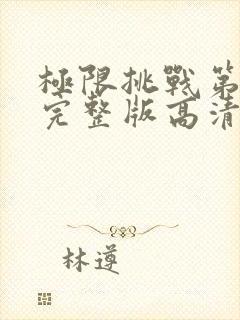 極限挑戰第
完整版高清
林遵